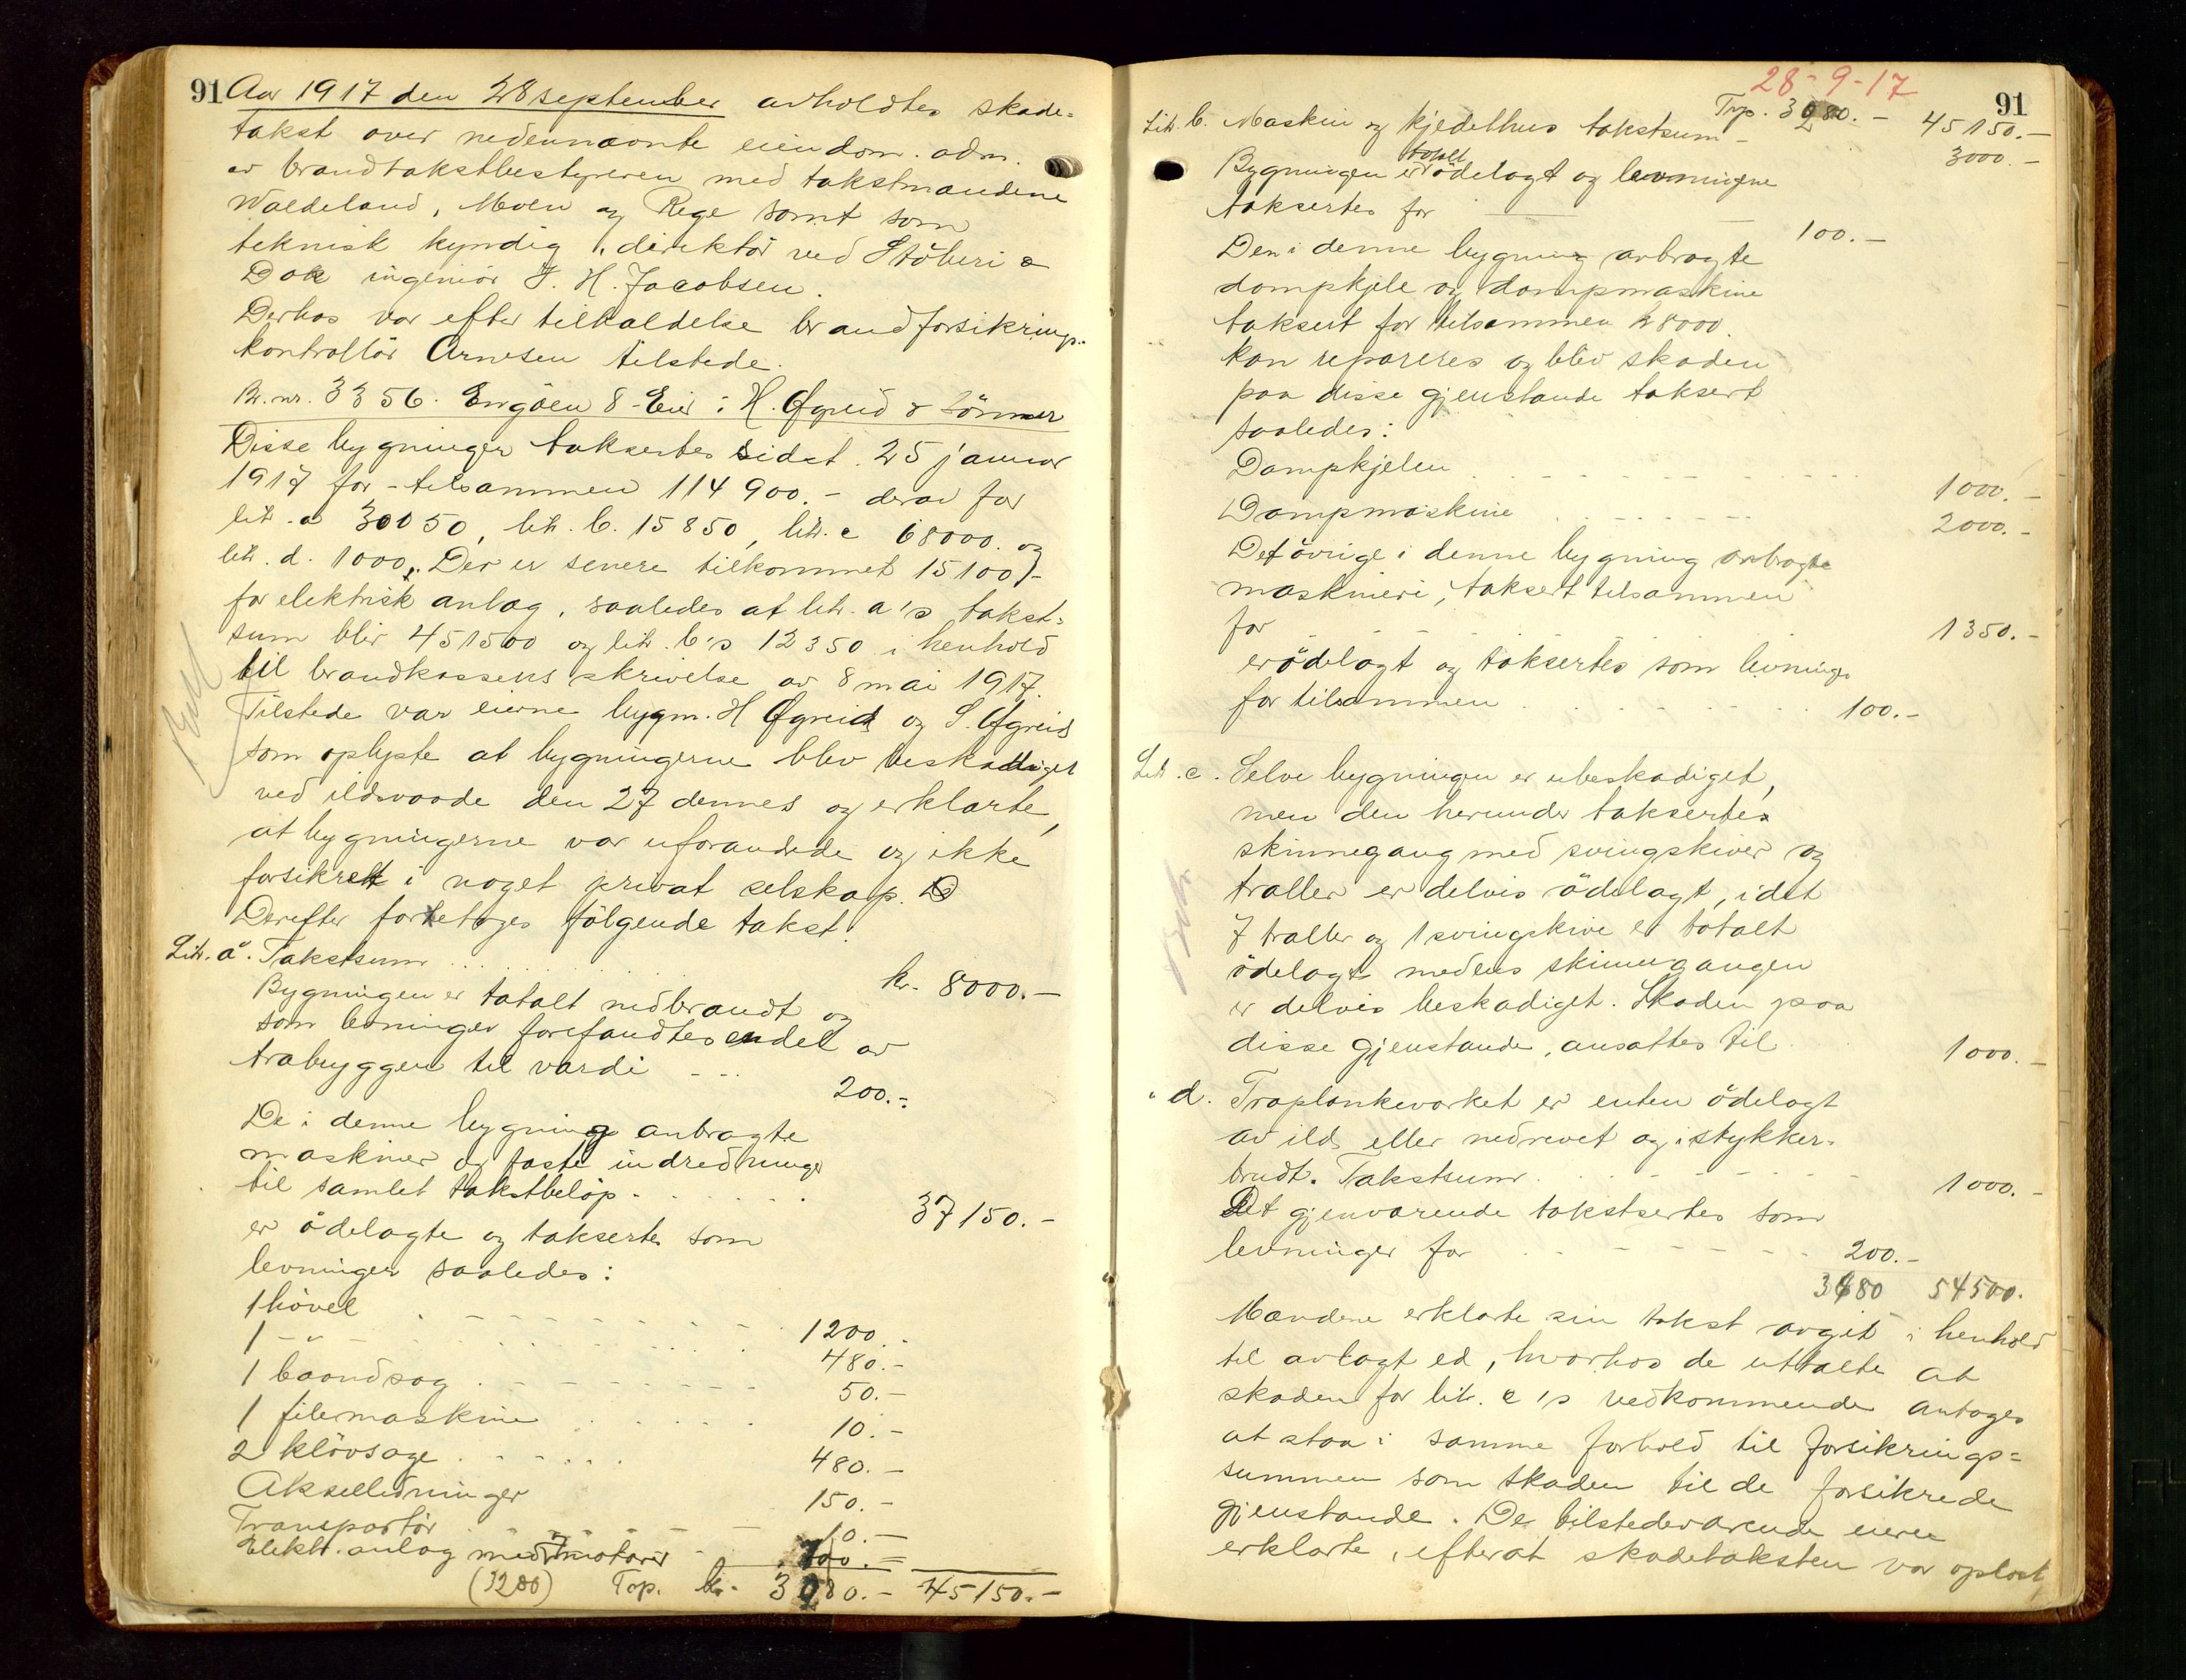 91 Aar 1917 den 28 september avholdtes skade=
takst over nedennævnte eiendom. adm.
av brandtakstbestyreren med takstmændene
Waldeland, Moen og Rege samt som
teknisk kyndig, direktør ved Støberi &
Dok ingeniør J. H. Jacobsen.
Derhos var efter tilkaldelse brandforsikrings-
kontrollør Arnesen tilstede.
Br. nr. 3356. Engøen 8 - Eier: H. Øgreid & Sønner
Disse bygninger taksertes sidst 25 januar
1917 for - tilsammen 114900.- derav for
litr. a 30050, litr. b. 15850, litr. c 68000. og
litr. d. 1000,. Der er senere tilkommet 15100,-
for elektrisk anlæg, saaledes at litr. a's takst=
sum blir 451500 og litr. b's 12350 i henhold
til brandkassens skrivelse av 8 mai 1917.
Tilstede var eierne bygm. H Øgreid og S. Øgreid
som oplyste at bygningerne blev beskadiget
ved ildsvaade den 27 dennes og erklærte,
at bygningerne var uforandrede og ikke
forsikret i noget privat selskap. D
Derefter foretoges følgende takst.
Litr. a. Takstsum . . . . . kr. 8000.-
Bygningen er totalt nedbrændt og
som levninger forefandtes endel av
træbryggen til værdi - - - 200.-
De i denne bygning anbragte
maskiner og faste indredninger
til samlet takstbeløp . . . . . 37150.-
er ødelagte og takserte som
levninger saaledes:
1 høvel . - - - - - 1200.-
1 - " - . . . . . 480.-
1 baandsag . - - - - 50.-
1 filemaskine . . . . 10.-
2 kløvsage . . . . . . 480.-
Akselledninger 150.-
Transportør - - - - 10.-
Elektr. anlæg med motorer - 700.-
(3200) Trp. kr. 3080.- 45150.-
28-9-17
91
Trp. 3080.- 45150.-
Litr. b. Maskin og kjedelhus takstsum - 3000.-
totalt
Bygningen er ødelagt og levningerne
taksertes for - - - 100.-
Den i denne bygning anbragte
dampkjele og dampmaskine
taksert for tilsammen kr 8000
kan repareres og blev skaden
paa disse gjenstande taksert
saaledes:
Dampkjelen . - - - - - 1000.-
Dampmaskine . - - - - 2000.-
Det øvrige i denne bygning anbragte
maskineri, taksert tilsammen
for - - - - - 1350.-
er ødelagt og taksertes som levninger
for tilsammen . . - . - . . 100.-
Litr. c. Selve bygningen er ubeskadiget,
men den herunder taksertes
skinnegang med svingskiver og
traller er delvis ødelagt, idet
7 traller og 1 svingskive er totalt
ødelagt medens skinnegangen
er delvis beskadiget. Skaden paa
disse gjenstande, ansattes til 1000.-
" d. Træplankeværket er enten ødelagt
av ild, eller nedrevet og istykker-
brudt. Takstsum . . - - - - 1000.-
Det gjenværende takstsertes som
levninger for - - - - - - 200.-
3480 54500.
Mændene erklærte sin takst avgit i henhold
til avlagt ed, hvorhos de uttalte at
skaden for litr. c's vedkommende antages
at staa i samme forhold til forsikrings=
summen som skaden til de forsikrede
gjenstande. De tilstedeværende eiere
erklærte, efterat skadetaksten var oplæst,